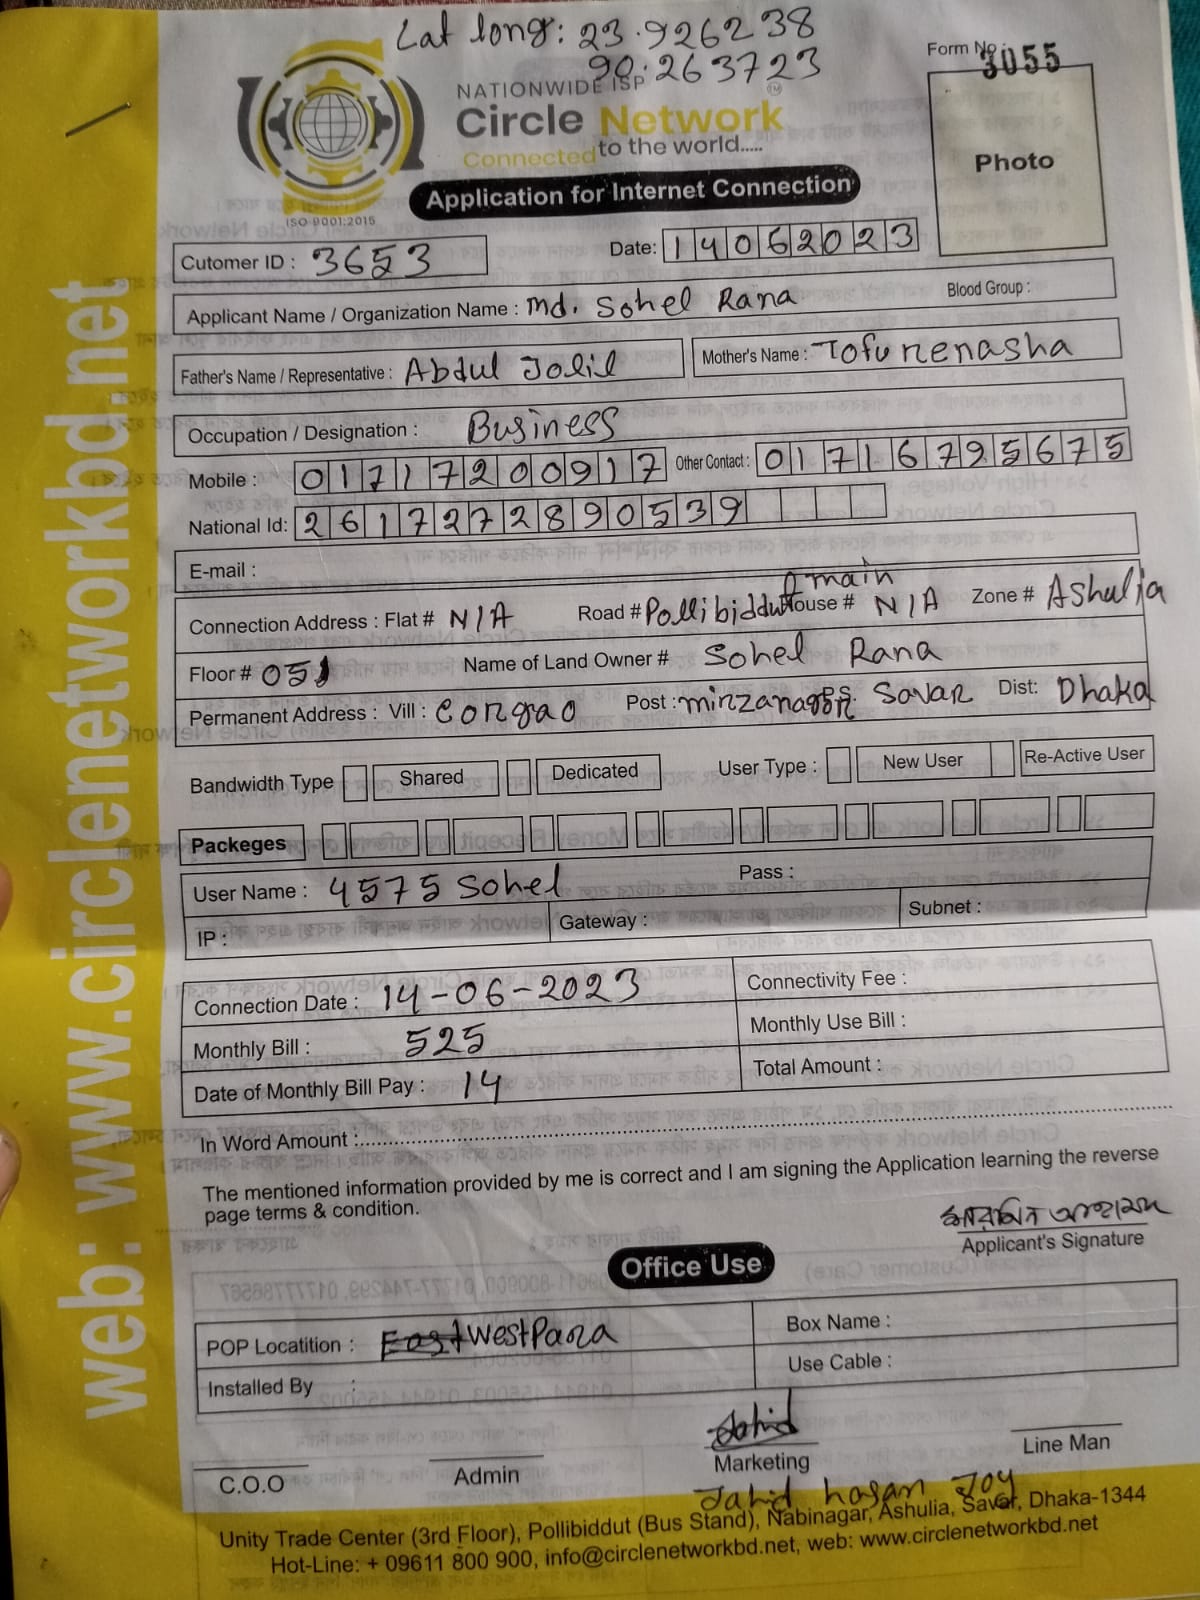 Lat long: 23.926238
90.263723
Form No. 3055
NATIONWIDE ISP
Circle Network
Connected to the world.....
Photo
Application for Internet Connection
ISO 9001:2015
Cutomer ID : 3653 Date: 14062023
Applicant Name / Organization Name : Md. Sohel Rana Blood Group :
Father's Name / Representative : Abdul Jolil Mother's Name : Tofurenasha
Occupation / Designation : Business
Mobile : 01717200917 Other Contact : 01716795675
National Id: 2617272890539
E-mail :
Connection Address : Flat # N/A Road # Pollibiddut main House # N/A Zone # Ashulia
Floor # 05 Name of Land Owner # Sohel Rana
Permanent Address : Vill : Corgao Post : mirzanagar P.S. Savar Dist: Dhaka
Bandwidth Type Shared Dedicated User Type : New User Re-Active User
Packeges
User Name : 4575 Sohel Pass :
IP : Gateway : Subnet :
Connection Date : 14-06-2023 Connectivity Fee :
Monthly Bill : 525 Monthly Use Bill :
Date of Monthly Bill Pay : 14 Total Amount :
In Word Amount :
The mentioned information provided by me is correct and I am signing the Application learning the reverse
page terms & condition.
Applicant's Signature
Office Use
POP Locatition : East westPara Box Name :
Installed By : Use Cable :
Jahid
C.O.O Admin Marketing Line Man
Jahid hasan Joy
Unity Trade Center (3rd Floor), Pollibiddut (Bus Stand), Nabinagar, Ashulia, Savar, Dhaka-1344
Hot-Line: + 09611 800 900, info@circlenetworkbd.net, web: www.circlenetworkbd.net
web: www.circlenetworkbd.net